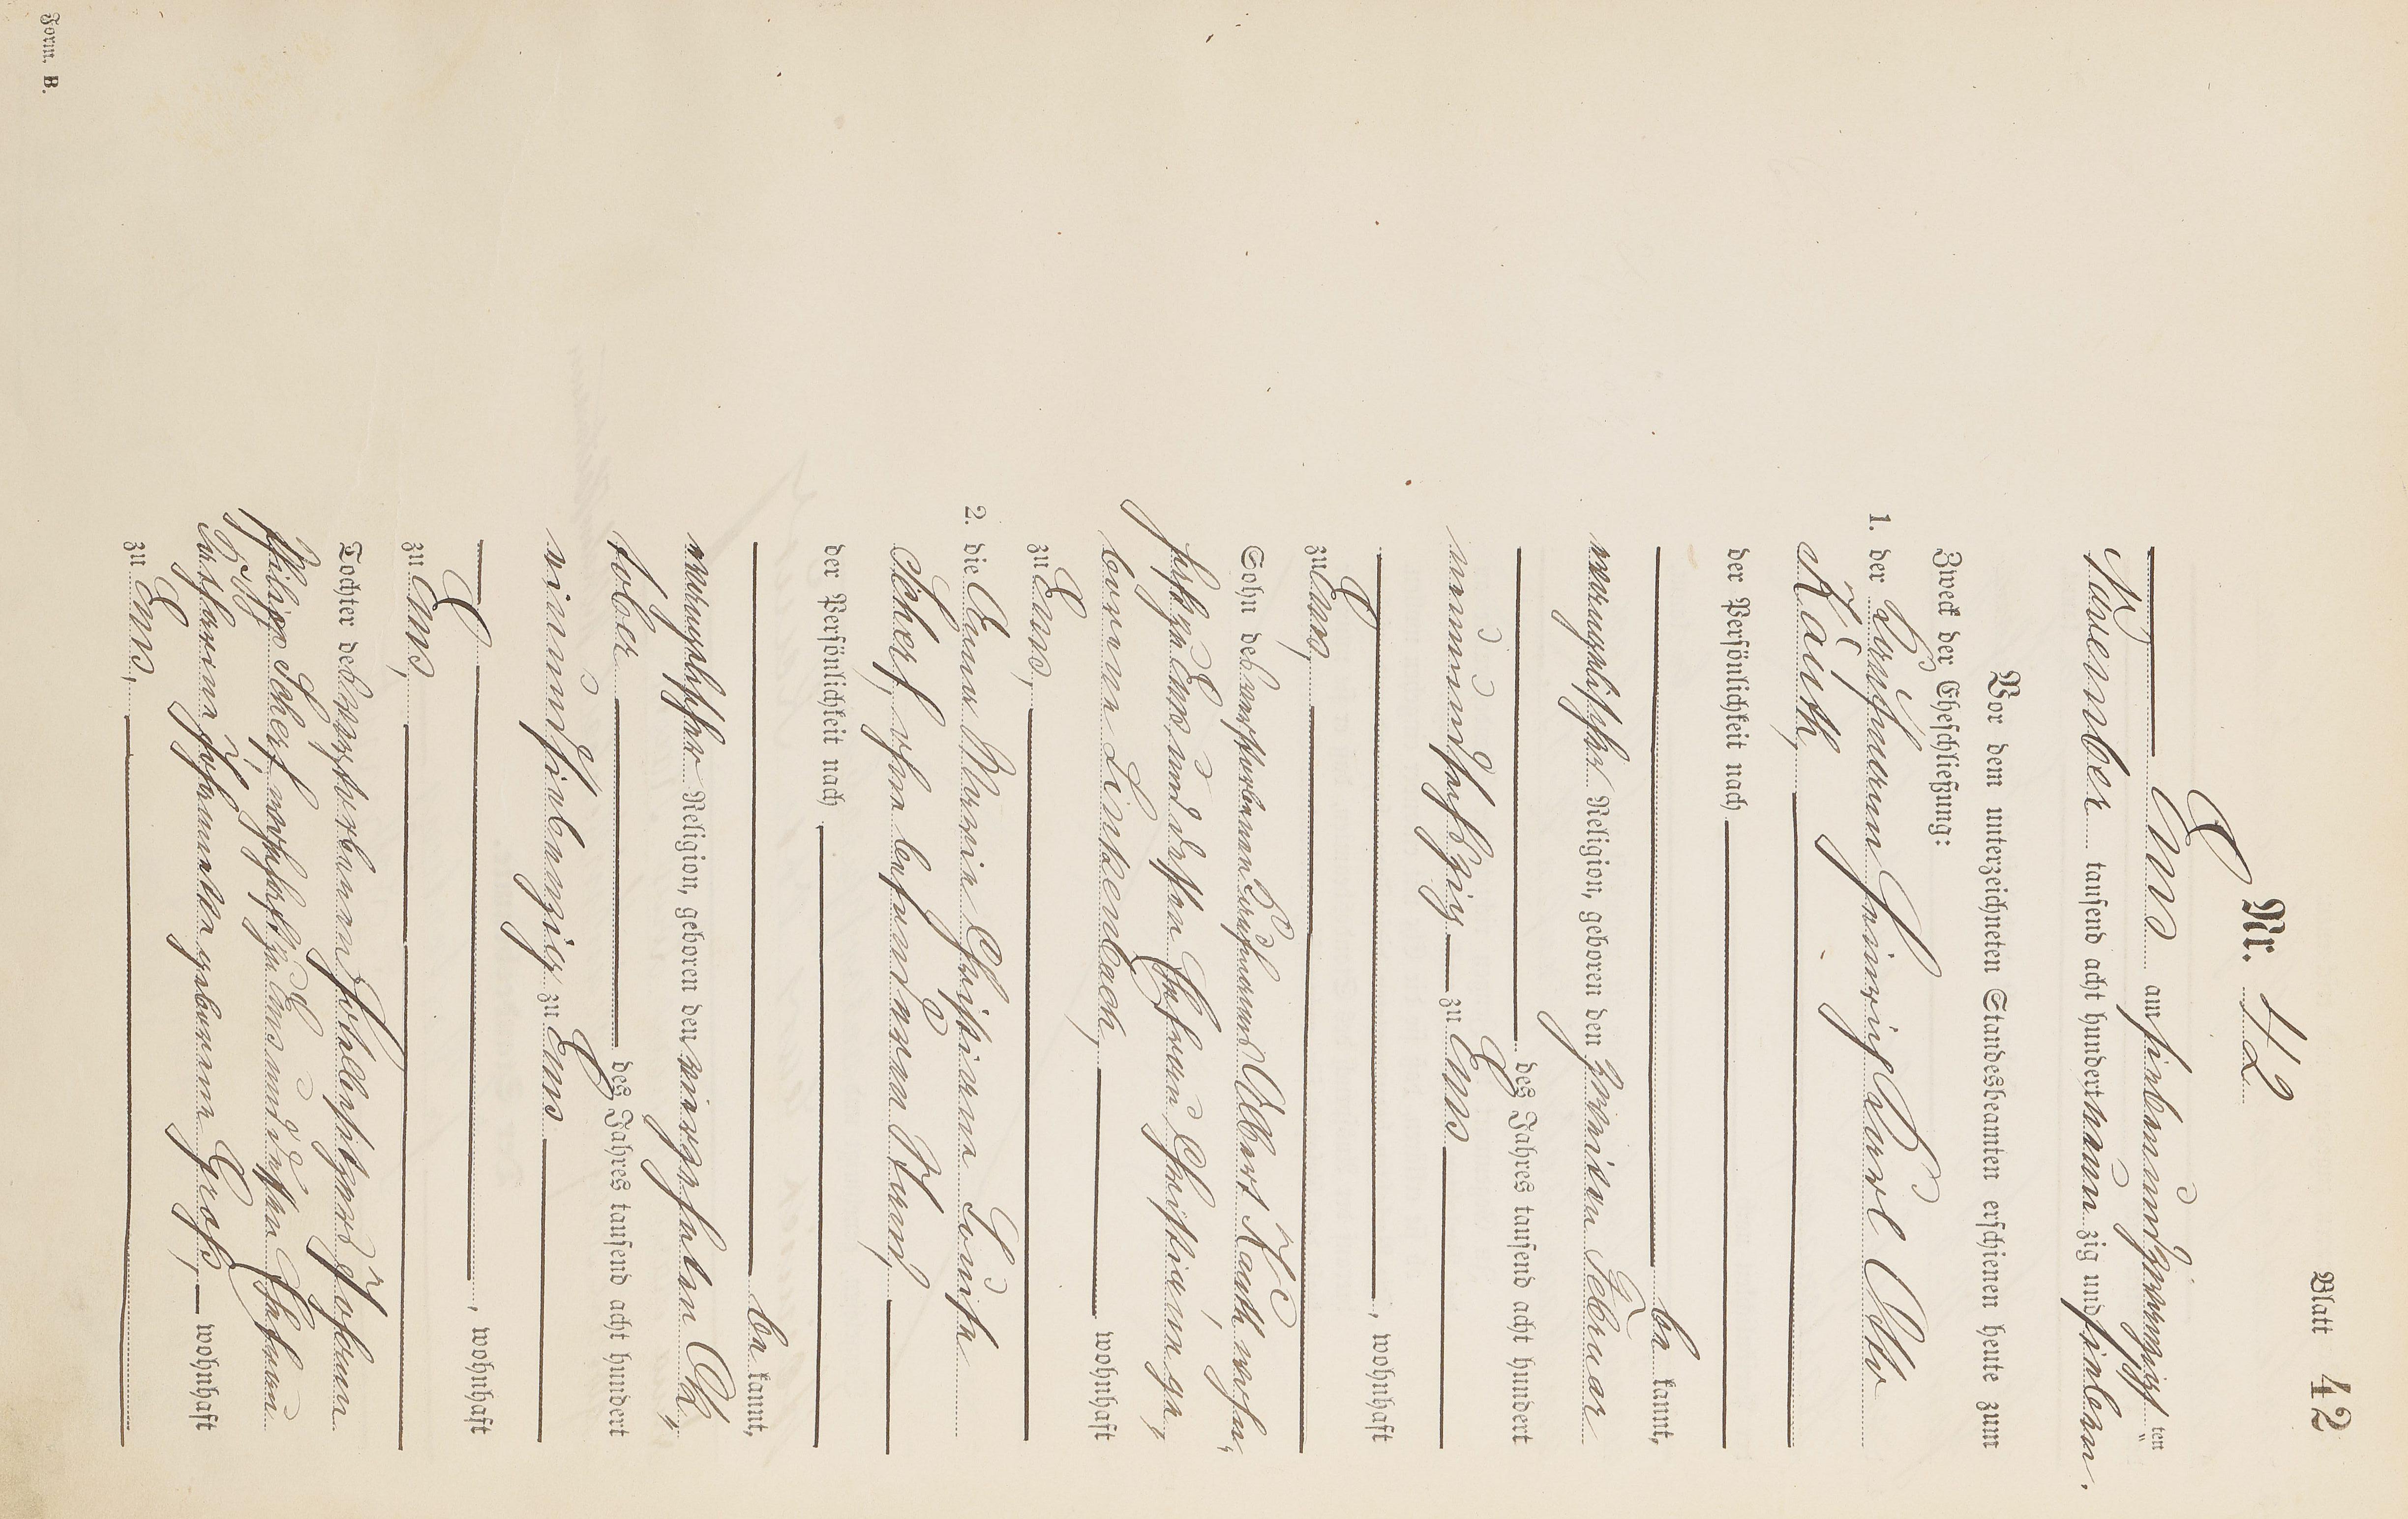 Blatt 42
Nr. 42
Ems am siebenundzwanzigsten
November tausend acht hundert neun zig und sieben.
Vor dem unterzeichneten Standesbeamten erschienen heute zum
Zweck der Eheschließung:
1. der Kaufmann Heinrich Karl Otto
Kauth,
der Persönlichkeit nach
be kannt,
evangelischer Religion, geboren den zweiten Februar
des Jahres tausend acht hundert
neunundsechzig zu Ems
, wohnhaft
zu Ems,
Sohn des verstorbenen Kaufmanns Albert Kauth wohn„
haft zu Ems und dessen Ehefrau Christiane ge„
borene Linkenbach, wohnhaft
zu Ems,
2. die Anna Maria Christiane Louise
Scherf, ohne besonderen Stand,
der Persönlichkeit nach
be kannt,
evangelischer Religion, geboren den vierzehnten Ok„
tober des Jahres tausend acht hundert
vierundsiebenzig zu Ems
, wohnhaft
zu Ems,
Tochter des verstorbenen Hotelbesitzers Johann
Philipp Scherf, wohnhaft zu Ems und dessen Ehefrau
Katharina Johannette geborene Groß, wohnhaft
zu Ems,
Form. B.